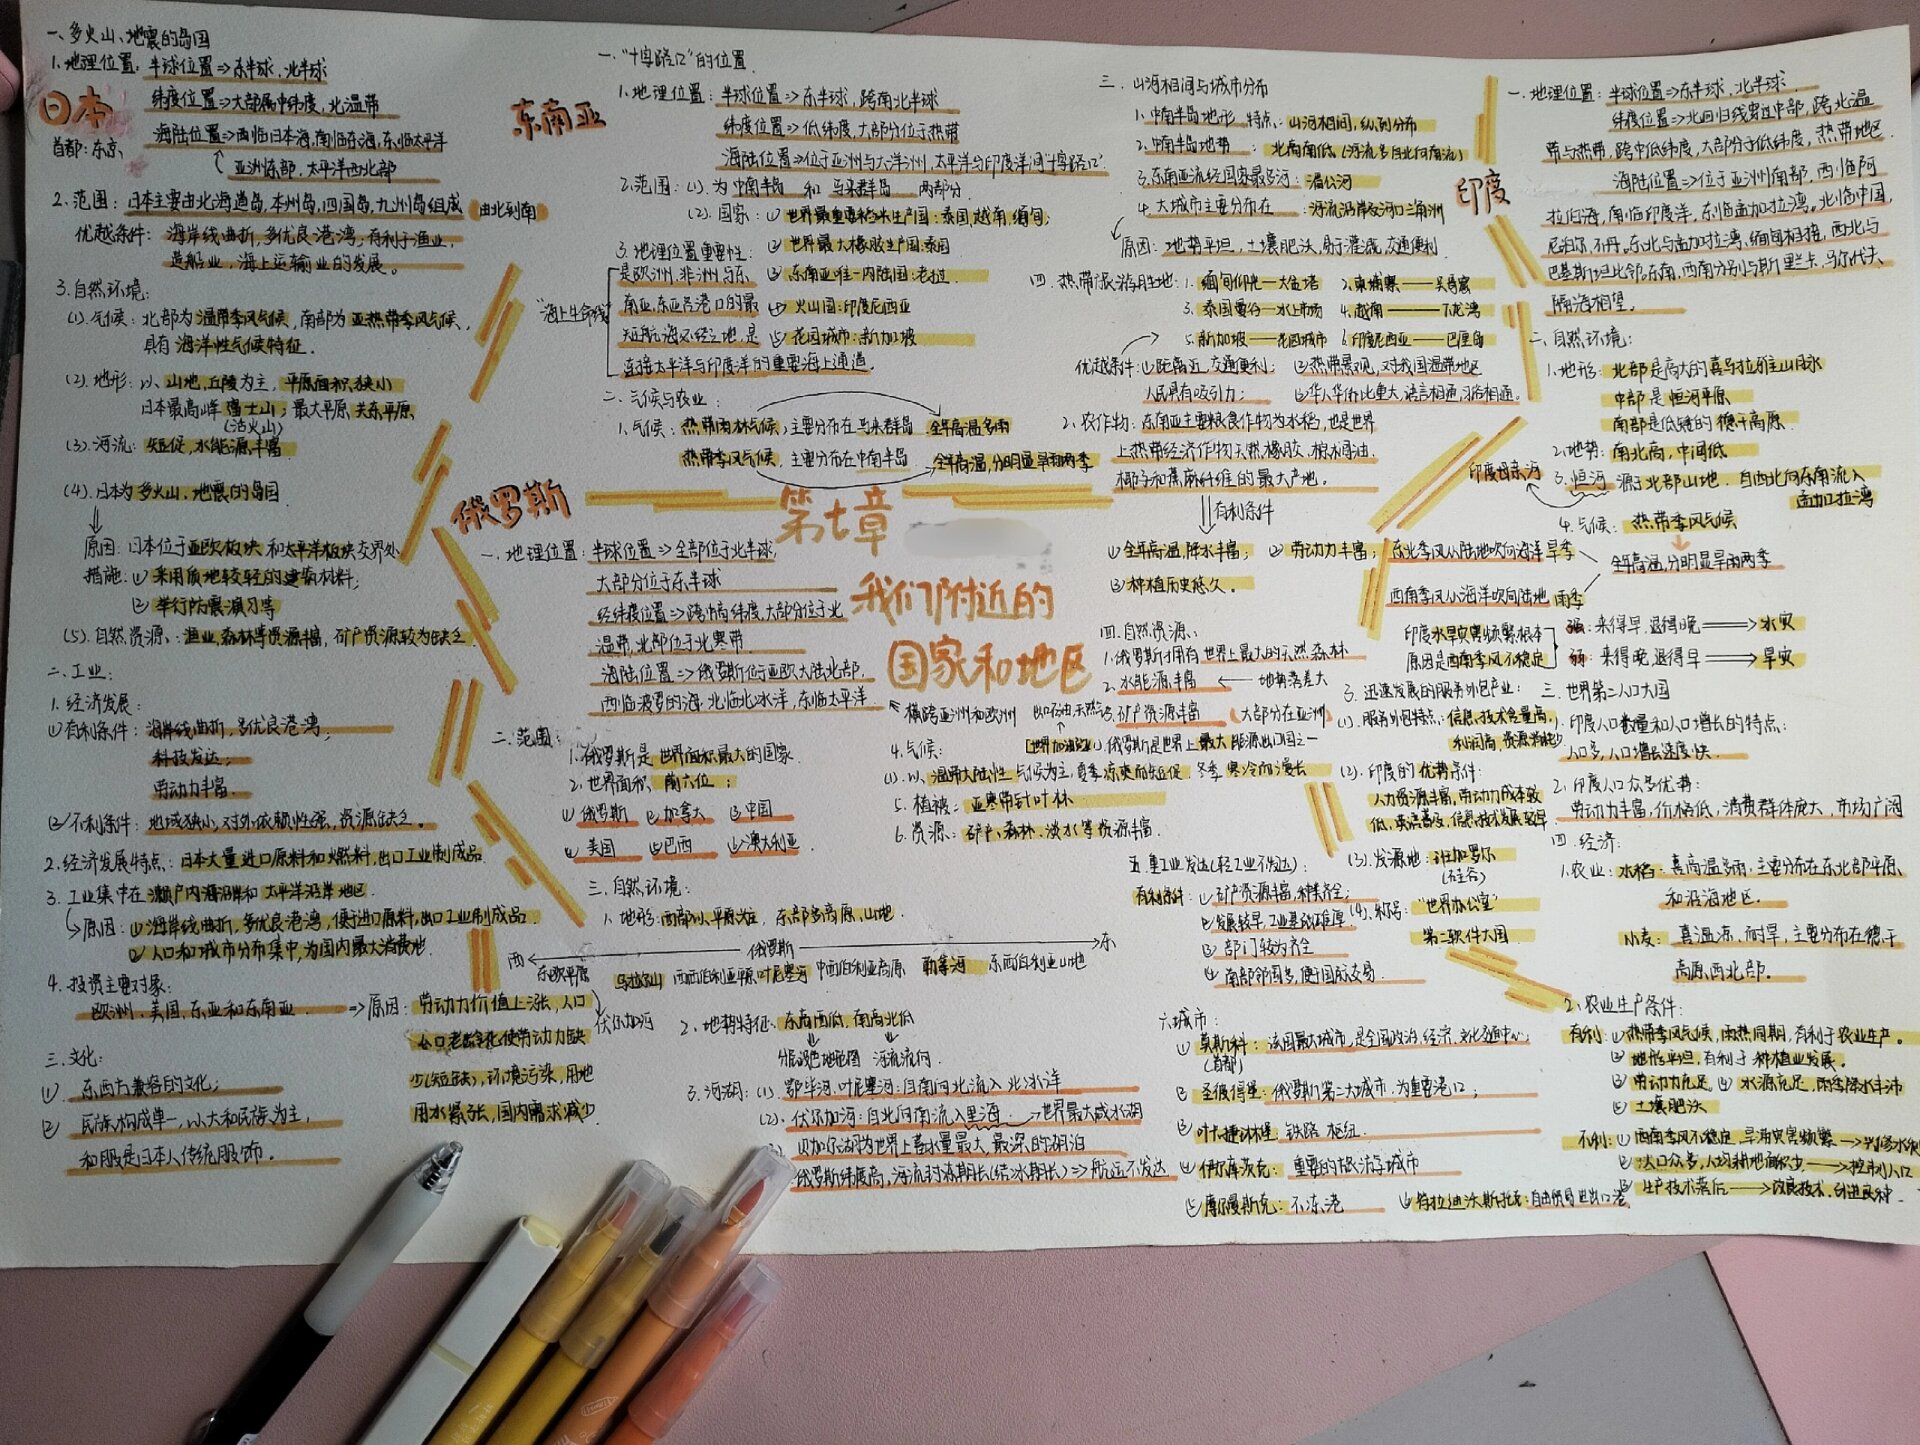 日本
首都：东京
一、多火山、地震的岛国
1.地理位置：半球位置⇒东半球，北半球
纬度位置⇒大部属中纬度，北温带
海陆位置⇒西临日本海，南临东海，东临太平洋
亚洲东部，太平洋西北部
2.范围：日本主要由北海道岛，本州岛，四国岛，九州岛组成（由北到南）
优越条件：海岸线曲折，多优良港湾，有利于渔业，
造船业，海上运输业的发展。
3.自然环境：
(1).气候：北部为温带季风气候，南部为亚热带季风气候，
具有海洋性气候特征.
(2).地形：以山地，丘陵为主，平原面积狭小
日本最高峰富士山；最大平原关东平原.
(活火山)
(3).河流：短促，水能源丰富
(4).日本为多火山、地震的岛国
原因：日本位于亚欧板块和太平洋板块交界处
措施：①采用质地较轻的建筑材料；
②举行防震演习等
(5).自然资源：渔业，森林等资源丰富，矿产资源较为缺乏
二、工业：
1.经济发展：
①有利条件：海岸线曲折，多优良港湾；
科技发达；
劳动力丰富.
②不利条件：地域狭小，对外依赖性强，资源缺乏。
2.经济发展特点：日本大量进口原料和燃料，出口工业制成品
3.工业集中在濑户内海沿岸和太平洋沿岸地区.
原因：①海岸线曲折，多优良港湾，便于进口原料，出口工业制成品
②人口和城市分布集中，为国内最大消费地.
4.投资主要对象：
欧洲、美国、东亚和东南亚 ⇒原因：劳动力价值上涨，人口
人口老龄化使劳动力缺
少(短缺)，环境污染，用地
用水紧张，国内需求减少.
三.文化：
① 东西方兼容的文化；
② 民族构成单一，以大和民族为主，
和服是日本人传统服饰。
东南亚
一."十字路口"的位置
1.地理位置：半球位置⇒东半球，跨南北半球
纬度位置⇒低纬度，大部分位于热带
海陆位置⇒位于亚洲与大洋洲，太平洋与印度洋间"十字路口"
2.范围：(1).为 中南半岛 和 马来群岛 两部分
(2).国家：①世界最重要稻米生产国：泰国，越南，缅甸；
②世界最大橡胶生产国：泰国
③东南亚唯一内陆国：老挝
④火山国：印度尼西亚
⑤花园城市：新加坡
3.地理位置重要性：
"海上生命线"
是欧洲、非洲与东
南亚，东亚各港口的最
短航海必经之地，是
连接太平洋与印度洋的重要海上通道.
二、气候与农业：
1.气候：热带雨林气候，主要分布在马来群岛 全年高温多雨
热带季风气候，主要分布在中南半岛 全年高温，分明显旱雨两季
2.农作物：东南亚主要粮食作物为水稻，也是世界
上热带经济作物天然橡胶，棕榈油，
椰子和蕉麻纤维的最大产地。
有利条件
①全年高温，降水丰富； ②劳动力丰富；
③种植历史悠久。
三.山河相间与城市分布
1.中南半岛地形特点：山河相间，纵列分布
2.中南半岛地势：北高南低（河流多自北向南流）
3.东南亚流经国家最多河：湄公河
4.大城市主要分布在：河流沿岸及河口三角洲
原因：地势平坦，土壤肥沃，易于灌溉，交通便利
四.热带旅游胜地：1.缅甸仰光—大金塔 2.柬埔寨——吴哥窟
3.泰国曼谷—水上市场 4.越南——下龙湾
5.新加坡——花园城市 6.印度尼西亚——巴厘岛
优越条件：①距离近，交通便利； ②热带景观，对我国温带地区
人民具有吸引力； ③华人华侨比重大，语言相通，习俗相通。
第七章
我们附近的
国家和地区
俄罗斯
一.地理位置：半球位置⇒全部位于北半球，
大部分位于东半球
经纬度位置⇒跨中高纬度，大部分位于北
温带，北部位于北寒带.
海陆位置⇒俄罗斯位于亚欧大陆北部，
西临波罗的海，北临北冰洋，东临太平洋
横跨亚洲和欧洲
二.范围：
1.俄罗斯是世界面积最大的国家.
2.世界面积，前六位：
①俄罗斯 ②加拿大 ③中国
④美国 ⑤巴西 ⑥澳大利亚
三.自然环境：
1.地形：西部以平原为主，东部多高原、山地.
西 俄罗斯 东
东欧平原 乌拉尔山 西西伯利亚平原 叶尼塞河 中西伯利亚高原 勒拿河 东西伯利亚山地
伏尔加河
2.地势特征：东高西低，南高北低
分层设色地形图 河流流向
3.河湖：(1).鄂毕河、叶尼塞河：自南向北流入北冰洋
(2).伏尔加河：自北向南流入里海.→世界最大咸水湖
贝加尔湖为世界上蓄水量最大，最深的湖泊
俄罗斯纬度高，河流封冻期长(结冰期长)⇒航运不发达
四.自然资源：
1.俄罗斯拥有世界上最大的天然森林
2.水能源丰富 ← 地势落差大
3.矿产资源丰富（大部分在亚洲）
俄罗斯是世界上最大能源出口国之一
4.气候：
(1).以温带大陆性气候为主，夏季凉爽而短促，冬季寒冷而漫长
5.植被：亚寒带针叶林
6.资源：矿产、森林、淡水等资源丰富.
五.重工业发达(轻工业不发达)：
有利条件：①矿产资源丰富，种类齐全；
②发展较早，工业基础雄厚
③部门较为齐全
④南部邻国多，便于国际交易.
六.城市：
①莫斯科：该国最大城市，是全国政治、经济、文化交通中心；
(首都)
②圣彼得堡：俄罗斯第二大城市，为重要港口；
③叶卡捷琳堡：铁路枢纽.
④伊尔库茨克：重要的旅游城市
⑤摩尔曼斯克：不冻港
⑥符拉迪沃斯托克：自由贸易进出口港
印度
一.地理位置：半球位置⇒东半球，北半球.
纬度位置⇒北回归线穿过中部，跨北温
带与热带，跨中低纬度，大部分于低纬度，热带地区.
海陆位置⇒位于亚洲南部，西临阿
拉伯海，南临印度洋，东临孟加拉湾。北临中国，
尼泊尔，不丹。东北与孟加拉湾、缅甸相接，西北与
巴基斯坦比邻，东南，西南分别与斯里兰卡，马尔代夫
隔海相望。
二.自然环境：
1.地形：北部是高大的喜马拉雅主山脉
中部是恒河平原
南部是低矮的德干高原.
2.地势：南北高，中间低
印度母亲河
3.恒河 源于北部山地，自西北向东南流入
孟加拉湾
4.气候：热带季风气候
全年高温，分明显旱雨两季
东北季风从陆地吹向海洋 旱季
西南季风从海洋吹向陆地 雨季
印度水旱灾害频繁根本
原因是西南季风不稳定
强：来得早，退得晚 ⇒ 水灾
弱：来得晚，退得早 ⇒ 旱灾
三.世界第二人口大国
1.印度人口数量和人口增长的特点：
人口多，人口增长速度快.
2.印度人口众多优势：
劳动力丰富，价格低，消费群体庞大，市场广阔
3.迅速发展的服务外包产业：
(1).服务外包特点：信息技术含量高，
利润高，资源消耗少
(2).印度的优势条件：
人力资源丰富，劳动力成本较
低，英语普及，信息技术发展较早
(3).发源地：班加罗尔
(硅谷)
(4).称号："世界办公室"
第二软件大国
四.经济：
1.农业：水稻：喜高温多雨，主要分布在东北部平原
和沿海地区.
小麦：喜温凉，耐旱，主要分布在德干
高原西北部.
2.农业生产条件：
有利：①热带季风气候，雨热同期，有利于农业生产。
②地形平坦，有利于种植业发展.
③劳动力充足，④水源充足，雨季降水丰沛
⑤土壤肥沃
不利：①西南季风不稳定，旱涝灾害频繁→
②人口众多，人均耕地面积少→控制人口
③生产技术落后→改良技术，引进良种.